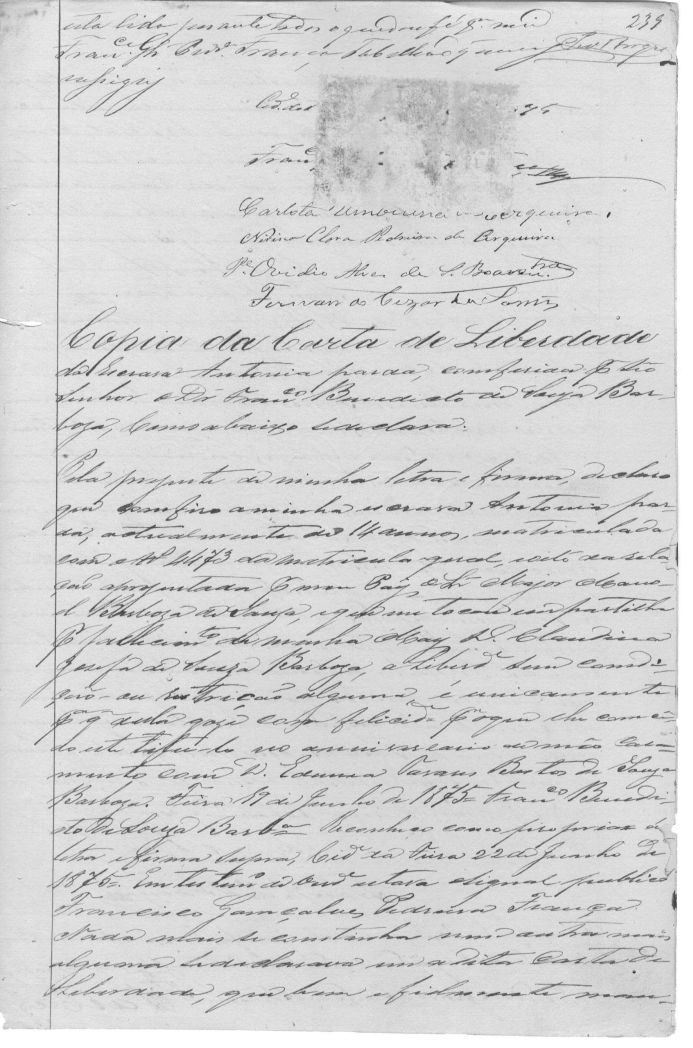 239
esta lida perante todos o que dou fé. Eu
Fran.co Glz Pedr.a França Tabellião q escrevi
subsigny
Carlota
Clara Pedreira de Cerqueira
P.e Ovidio Alves de S. Boaventura
Copia da Carta de Liberdade
da Escrava Antonia parda, comferida p. seo
Senhor o Dr Fran.co Benedicto de Souza Bar-
boza, como abaixo se declara.
Pela prezente de minha letra e firma, declaro
que comfiro a minha escrava Antonia par-
da, actualmente de 14 annos, matriculada
com o Nº 4473 da matricula geral, e da rela-
ção aprezentada p. meu Pay, o Sr. Major Mano-
el Barboza de Souza, e que me tocou em partilha
p. fallecim.to de minha May D. Claudina
Jozefa de Souza Barboza, a Liberd.e sem comdi-
ção ou restricção alguma, e unicamente
p.a q ella goze com felicid.e p.o que lhe comce-
do este titulo no anniversario de meo Caza-
mento com D. Edunea Tavares Bastos de Souza
Barboza. Feira 19 de Junho de 1875. Fran.co Benedi-
cto de Souza Barb.a Reconheço como proprias a
letra e firma supra. Cid.e da Feira 22 de Junho de
1875. Em testim.o de verd.e estava o signal publico
Francisco Gonçalves Pedreira França
Nada mais se continha nem outra mais
alguma se declarava em a dita Carta de
Liberdade, que bem e fielmente man-